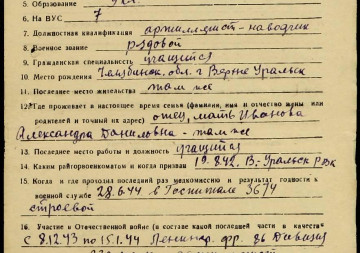 5. Образование 9 кл.
6. На ВУС 7
7. Должностная квалификация артиллерист-наводчик
8. Военное звание рядовой
9. Гражданская специальность учащийся
10. Место рождения Челябинск. обл. г Верне Уральск
11. Последнее место жительства там же
12. Где проживает в настоящее время семья (фамилия, имя и отчество жены или
родителей и точный их адрес) отец, мать Иванова
Александра Даниловна - там же
13. Последнее место работы и должность учащийся
14. Каким райгорвоенкоматом и когда призван 19.8.42, В-Уральск РВК
15. Когда и где проходил последний раз медкомиссию и результат годности к
военной службе 28.6.44 в Госпитале 3674
строевой
16. Участие в Отечественной войне (в составе какой последней части, в качестве
С 8.12.43 по 15.1.44 Ленингр. фр. 86 Дивизия